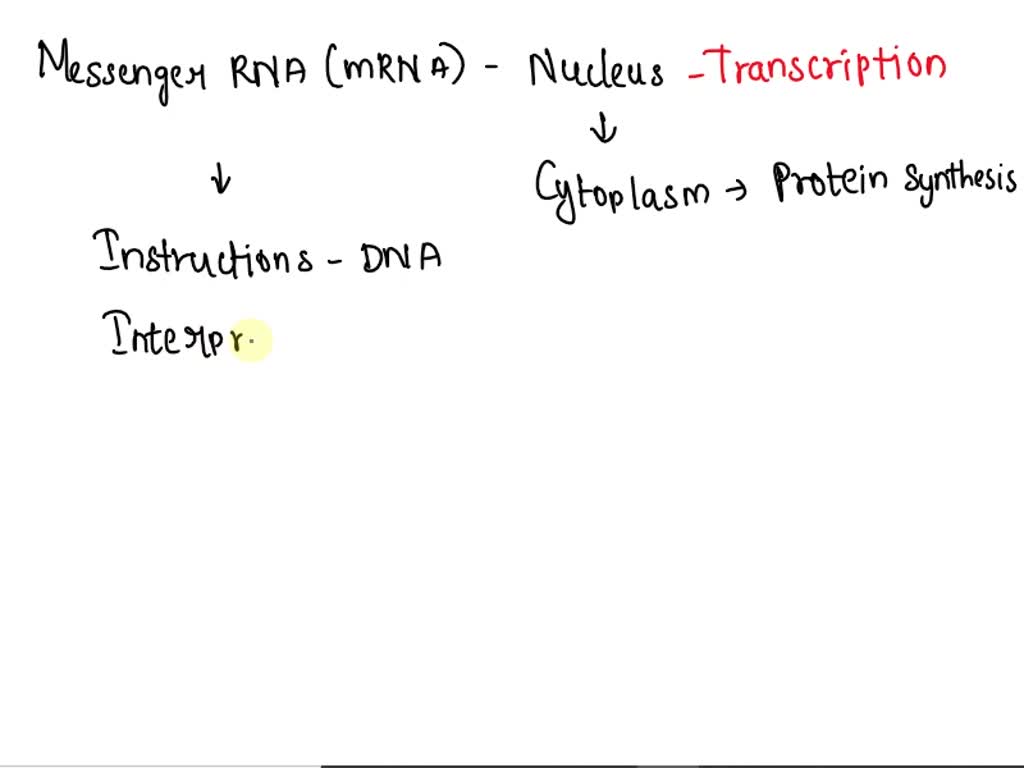 Messenger RNA (mRNA) - Nucleus - Transcription
↓ ↓
Cytoplasm → Protein synthesis
Instructions - DNA
Interpr